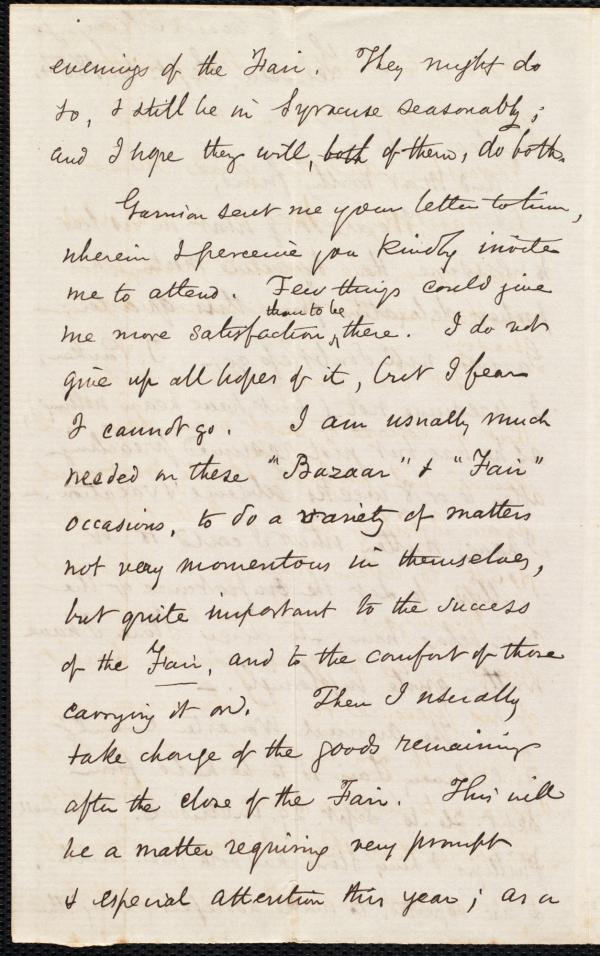 evenings of the Fair. They might do
so, & still be in Syracuse seasonably;
and I hope they will, both of them, do both.
Garrison sent me your letter to him,
wherein I perceive you kindly invite
me to attend. Few things could give
than to be
me more satisfaction, there. I do not
give up all hopes of it, but I fear
I cannot go. I am usually much
needed on these "Bazaar" & "Fair"
occasions, to do a variety of matters
not very momentous in themselves,
but quite important to the success
of the Fair, and to the comfort of those
carrying it on. Then I usually
take charge of the goods remaining
after the close of the Fair. This will
be a matter requiring very prompt
& especial attention this year; as a